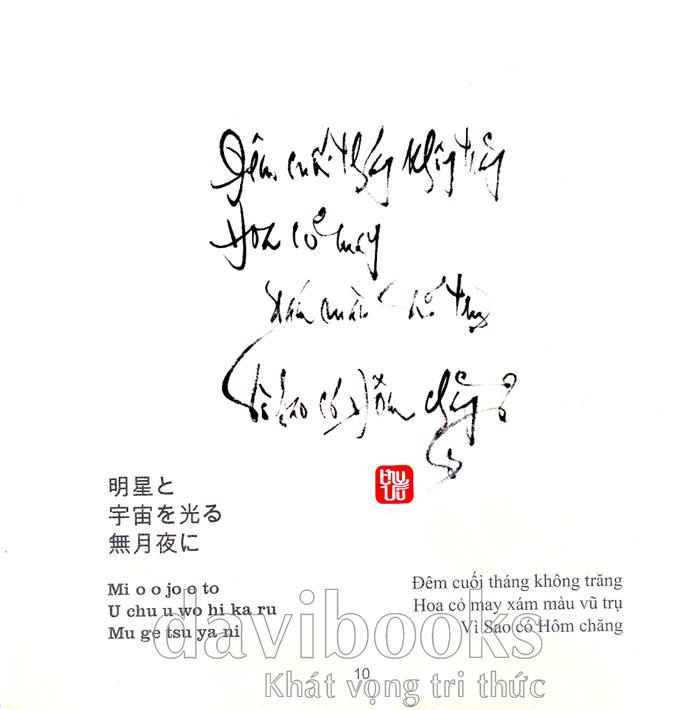 Đêm cuối tháng không trăng
Hoa cỏ may
xám màu vũ trụ
Vì Sao có Hôm chăng?
明星と
宇宙を光る
無月夜に
Mi o o jo o to
U chu u wo hi ka ru
Mu ge tsu ya ni
Đêm cuối tháng không trăng
Hoa cỏ may xám màu vũ trụ
Vì Sao có Hôm chăng
10
davibooks
Khát vọng tri thức